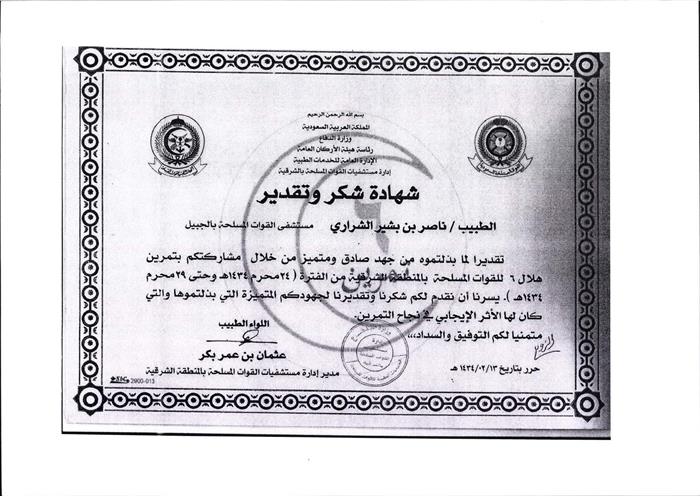 بسم الله الرحمن الرحيم
المملكة العربية السعودية
وزارة الدفاع
رئاسة هيئة الأركان العامة
الإدارة العامة للخدمات الطبية
إدارة مستشفيات القوات المسلحة بالشرقية
شهادة شكر وتقدير
الطبيب / ناصر بن بشير الشراري مستشفى القوات المسلحة بالجبيل
تقديرا لما بذلتموه من جهد صادق ومتميز من خلال مشاركتكم بتمرين
هلال ٦ للقوات المسلحة بالمنطقة الشرقية من الفترة ( ٢٤ محرم ١٤٣٤هـ وحتى ٢٩ محرم
١٤٣٤هـ ). يسرنا أن نقدم لكم شكرنا وتقديرنا لجهودكم المتميزة التي بذلتموها والتي
كان لها الأثر الإيجابي في نجاح التمرين.
متمنيا لكم التوفيق والسداد،،،
اللواء الطبيب
عثمان بن عمر بكر
مدير إدارة مستشفيات القوات المسلحة بالمنطقة الشرقية
حرر بتاريخ ١٤٣٤/٠٢/١٣ هـ
2900-013